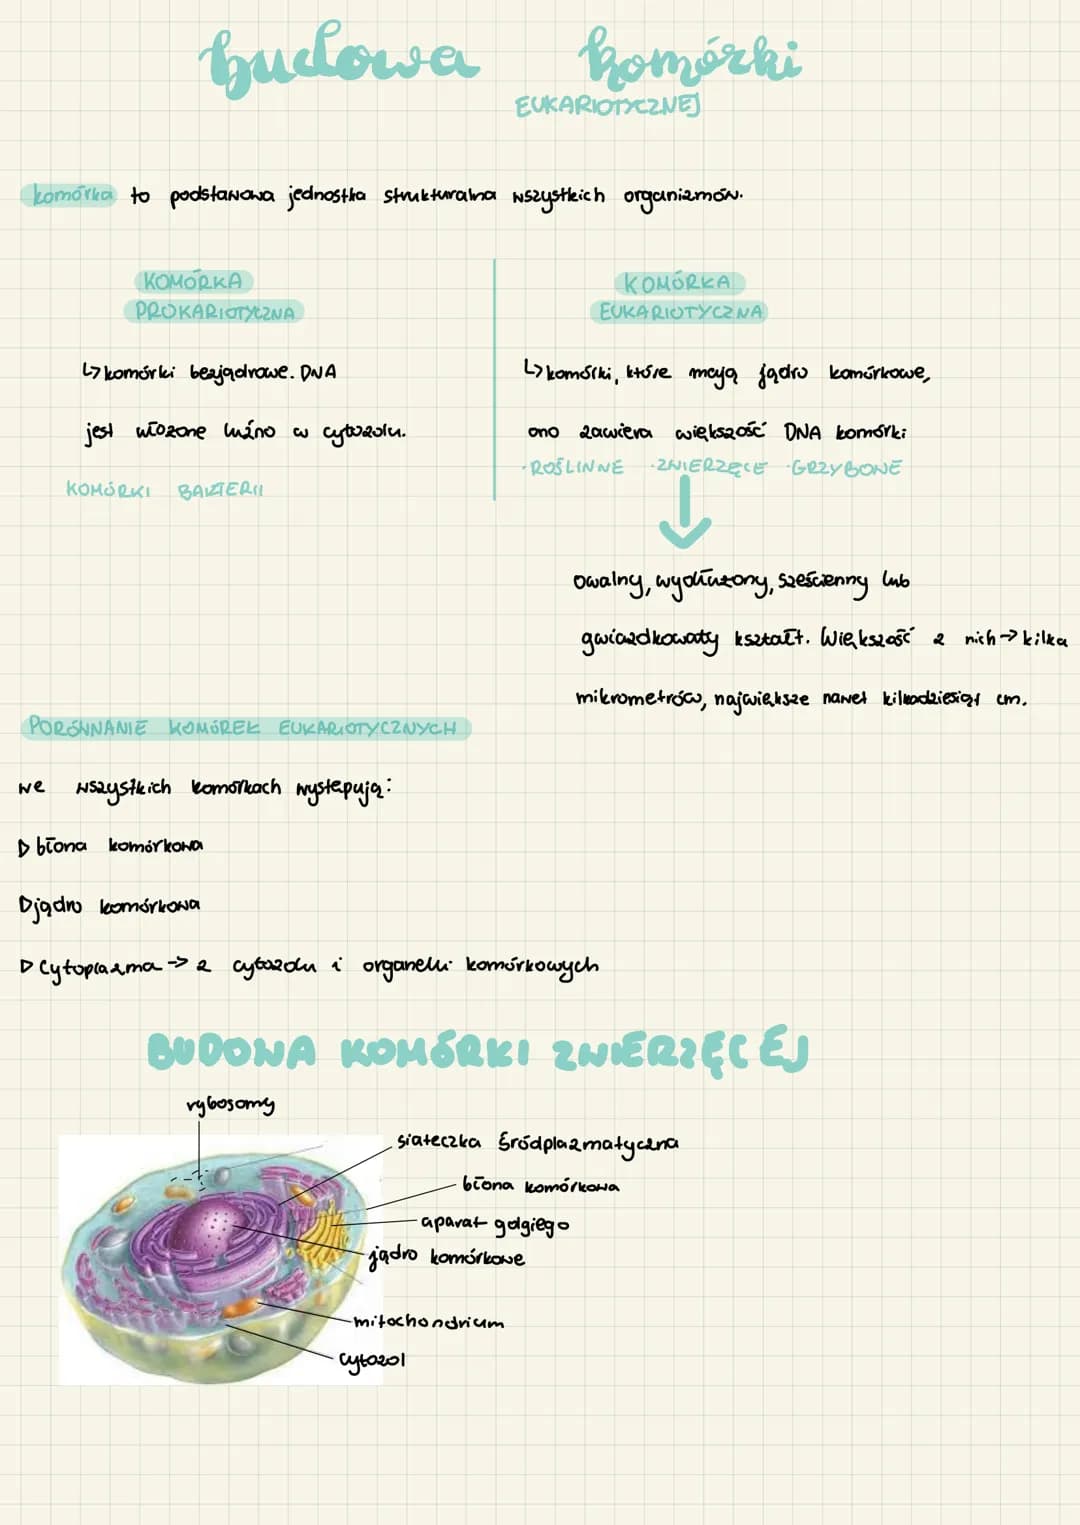 budowa komórki
EUKARIOTYCZNEJ
komórka to podstawowa jednostka strukturalna wszystkich organizmów.
KOMÓRKA
PROKARIOTYCZNA
↳ komórki bezjądrowe. DNA
jest włożone luźno w cytozolu.
KOMÓRKI BAKTERII
KOMÓRKA
EUKARIOTYCZNA
↳ komórki, które mają jądro komórkowe,
ono zawiera większość DNA komórki
·ROŚLINNE ·ZWIERZĘCE ·GRZYBOWE
owalny, wydłużony, sześcienny lub
gwiazdkowaty kształt. Większość z nich → kilka
mikrometrów, największe nawet kilkadziesiąt cm.
PORÓWNANIE KOMÓREK EUKARIOTYCZNYCH
we wszystkich komórkach występują:
▷ błona komórkowa
▷ jądro komórkowa
▷ Cytoplazma → z cytozolu i organelli komórkowych
BUDOWA KOMÓRKI ZWIERZĘCEJ
rybosomy
siateczka śródplazmatyczna
błona komórkowa
aparat golgiego
jądro komórkowe
mitochondrium
cytozol